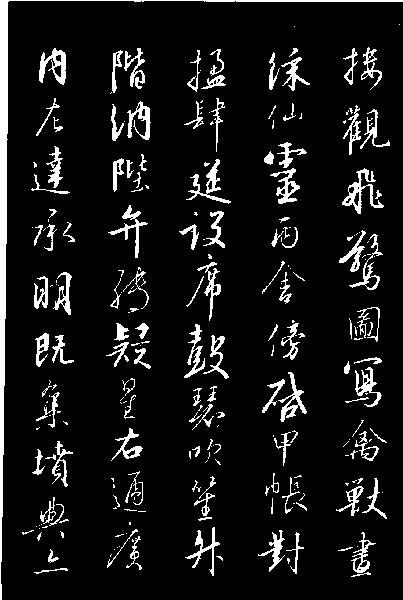 樓觀飛驚圖寫禽獸畫
綵仙靈丙舍傍啟甲帳對
楹肆筵設席鼓瑟吹笙升
階納陛弁轉疑星右通廣
內左達承明既集墳典亦